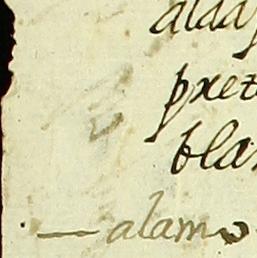 aldaş
pret
blan
— alamo